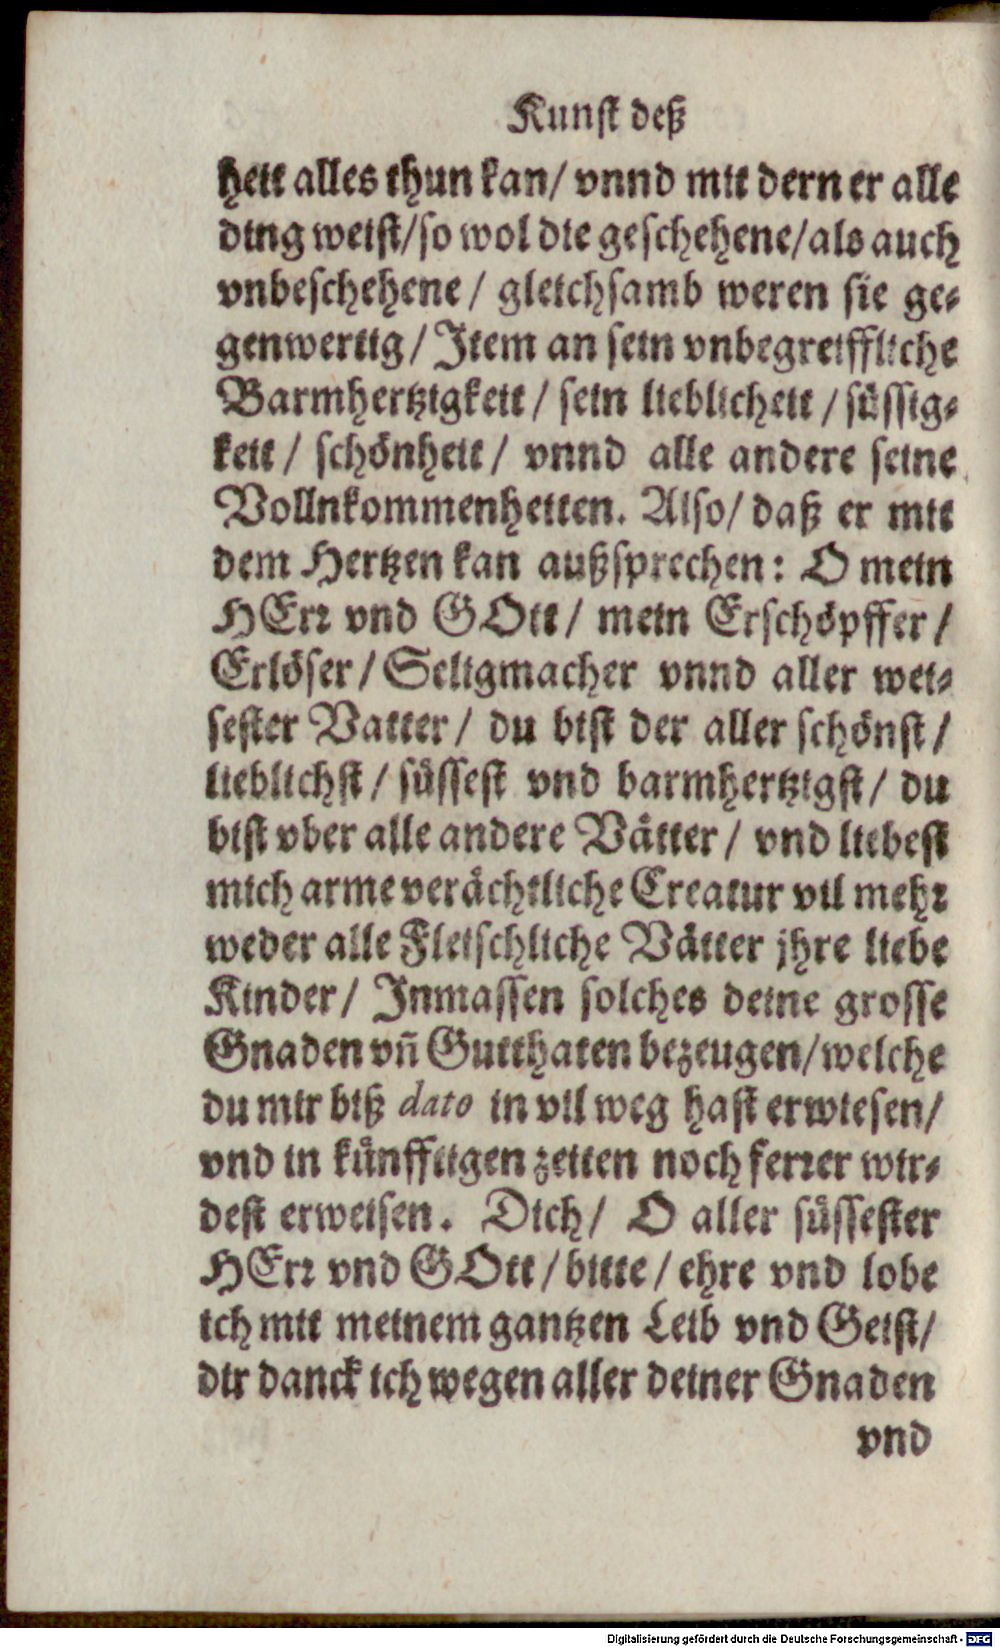 Kunst deß
heit alles thun kan/ vnnd mit dern er alle
ding weist/so wol die geschehene/als auch
vnbeschehene / gleichsamb weren sie ge-
genwertig / Item an sein vnbegreiffliche
Barmhertzigkeit / sein lieblicheit / süssig-
keit / schönheit / vnnd alle andere seine
Vollnkommenheiten. Also/ daß er mit
dem Hertzen kan außsprechen: O mein
HErr vnd GOtt / mein Erschöpffer /
Erlöser / Seligmacher vnnd aller wei-
sester Vatter / du bist der aller schönst /
lieblichst / süssest vnd barmhertzigst / du
bist vber alle andere Vätter / vnd liebest
mich arme verächtliche Creatur vil mehr
weder alle Fleischliche Vätter jhre liebe
Kinder / Inmassen solches deine grosse
Gnaden vñ Gutthaten bezeugen/welche
du mir biß dato in vil weg hast erwiesen/
vnd in künfftigen zeiten noch ferrer wir-
dest erweisen. Dich / O aller süssester
HErr vnd GOtt / bitte / ehre vnd lobe
ich mit meinem gantzen Leib vnd Geist/
dir danck ich wegen aller deiner Gnaden
vnd
Digitalisierung gefördert durch die Deutsche Forschungsgemeinschaft - DFG